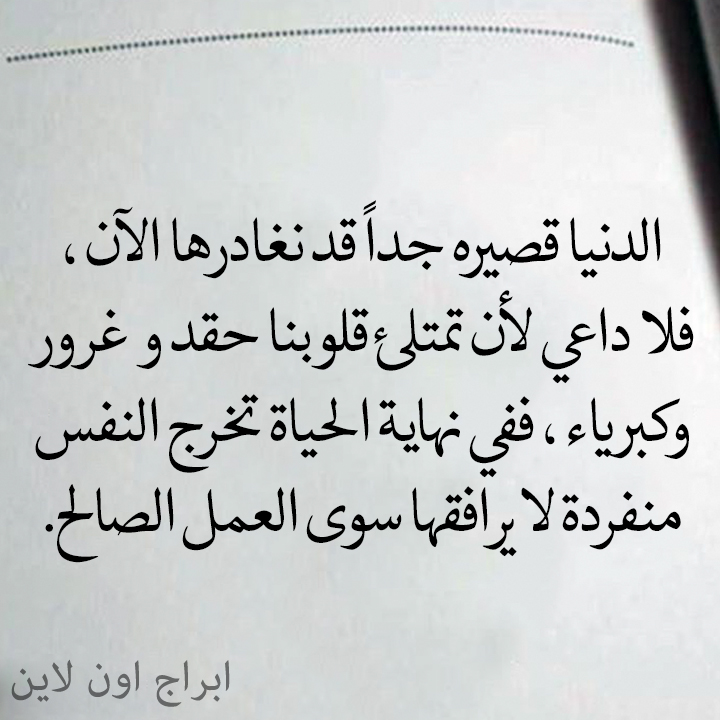 الدنيا قصيره جداً قد نغادرها الآن ،
فلا داعي لأن تمتلئ قلوبنا حقد و غرور
وكبرياء ، ففي نهاية الحياة تخرج النفس
منفردة لا يرافقها سوى العمل الصالح.
ابراج اون لاين